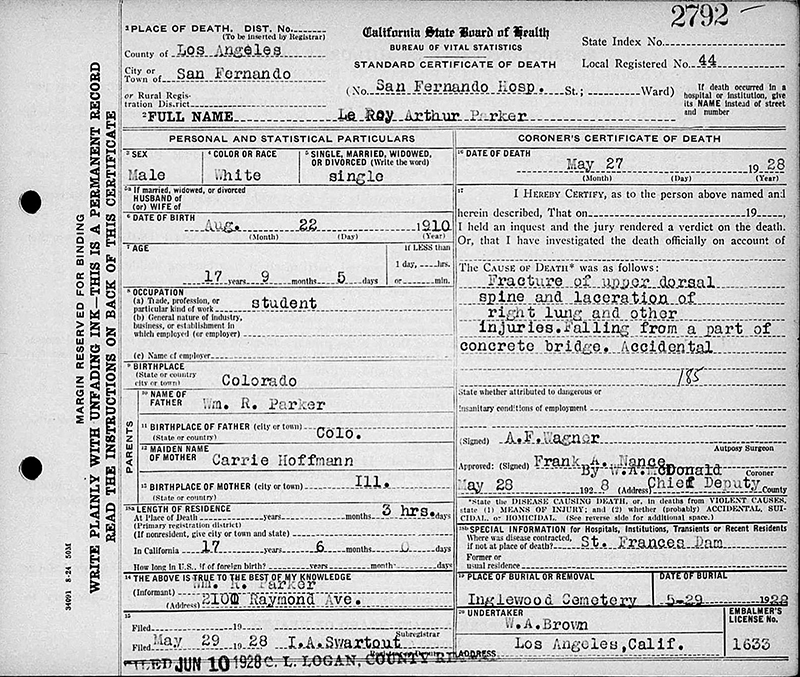 2792
1 PLACE OF DEATH, DIST. No.
(To be inserted by Registrar)
County of Los Angeles
City or
Town of San Fernando
or Rural Regis-
tration District
California State Board of Health
BUREAU OF VITAL STATISTICS
STANDARD CERTIFICATE OF DEATH
(No. San Fernando Hosp. St.; Ward)
State Index No.
Local Registered No. 44
If death occurred in a
hospital or institution, give
its NAME instead of street
and number
2 FULL NAME Le Roy Arthur Parker
MARGIN RESERVED FOR BINDING
WRITE PLAINLY WITH UNFADING INK—THIS IS A PERMANENT RECORD
READ THE INSTRUCTIONS ON BACK OF THIS CERTIFICATE
34091 8-24 50M
PERSONAL AND STATISTICAL PARTICULARS
3 SEX
Male
4 COLOR OR RACE
White
5 SINGLE, MARRIED, WIDOWED,
OR DIVORCED (Write the word)
single
5a If married, widowed, or divorced
HUSBAND of
(or) WIFE of
6 DATE OF BIRTH Aug. 22 1910
(Month) (Day) (Year)
7 AGE
17 years 9 months 5 days
If LESS than
1 day, hrs.
or min.
8 OCCUPATION
(a) Trade, profession, or
particular kind of work student
(b) General nature of industry,
business, or establishment in
which employed (or employer)
(c) Name of employer
9 BIRTHPLACE
(State or country
city or town) Colorado
PARENTS
10 NAME OF
FATHER Wm. R. Parker
11 BIRTHPLACE OF FATHER (city or town)
(State or country) Colo.
12 MAIDEN NAME
OF MOTHER Carrie Hoffmann
13 BIRTHPLACE OF MOTHER (city or town)
(State or country) Ill.
18a LENGTH OF RESIDENCE
At Place of Death years months 3 hrs. days
(Primary registration district)
(If nonresident, give city or town and state)
In California 17 years 6 months 0 days
How long in U.S., if of foreign birth? years months days
14 THE ABOVE IS TRUE TO THE BEST OF MY KNOWLEDGE
(Informant) Wm. R. Parker
(Address) 2100 Raymond Ave.
15
Filed 19
Filed May 29 19 28 I.A.Swartout
Subregistrar
FILED JUN 10 1928 C. L. LOGAN, COUNTY
CORONER'S CERTIFICATE OF DEATH
16 DATE OF DEATH
May 27 19 28
(Month) (Day) (Year)
17 I HEREBY CERTIFY, as to the person above named and
herein described, That on 19 ,
I held an inquest and the jury rendered a verdict on the death.
Or, that I have investigated the death officially on account of
The CAUSE OF DEATH* was as follows:
Fracture of upper dorsal
spine and laceration of
right lung and other
injuries.Falling from a part of
concrete bridge. Accidental
185
State whether attributed to dangerous or
insanitary conditions of employment
(Signed) A.F.Wagner
Autopsy Surgeon
Approved: (Signed) Frank A. Nance
By W.A.McDonald Coroner
May 28 192 8 (Address) Chief Deputy County
*State the DISEASE CAUSING DEATH, or, in deaths from VIOLENT CAUSES,
state (1) MEANS OF INJURY; and (2) whether (probably) ACCIDENTAL, SUI-
CIDAL, or HOMICIDAL. (See reverse side for additional space.)
18b SPECIAL INFORMATION for Hospitals, Institutions, Transients or Recent Residents
Where was disease contracted,
if not at place of death? St. Frances Dam
Former or
usual residence
19 PLACE OF BURIAL OR REMOVAL
Inglewood Cemetery
DATE OF BURIAL
5-29 1928
20 UNDERTAKER
W.A.Brown
ADDRESS Los Angeles,Calif.
EMBALMER'S
LICENSE No.
1633